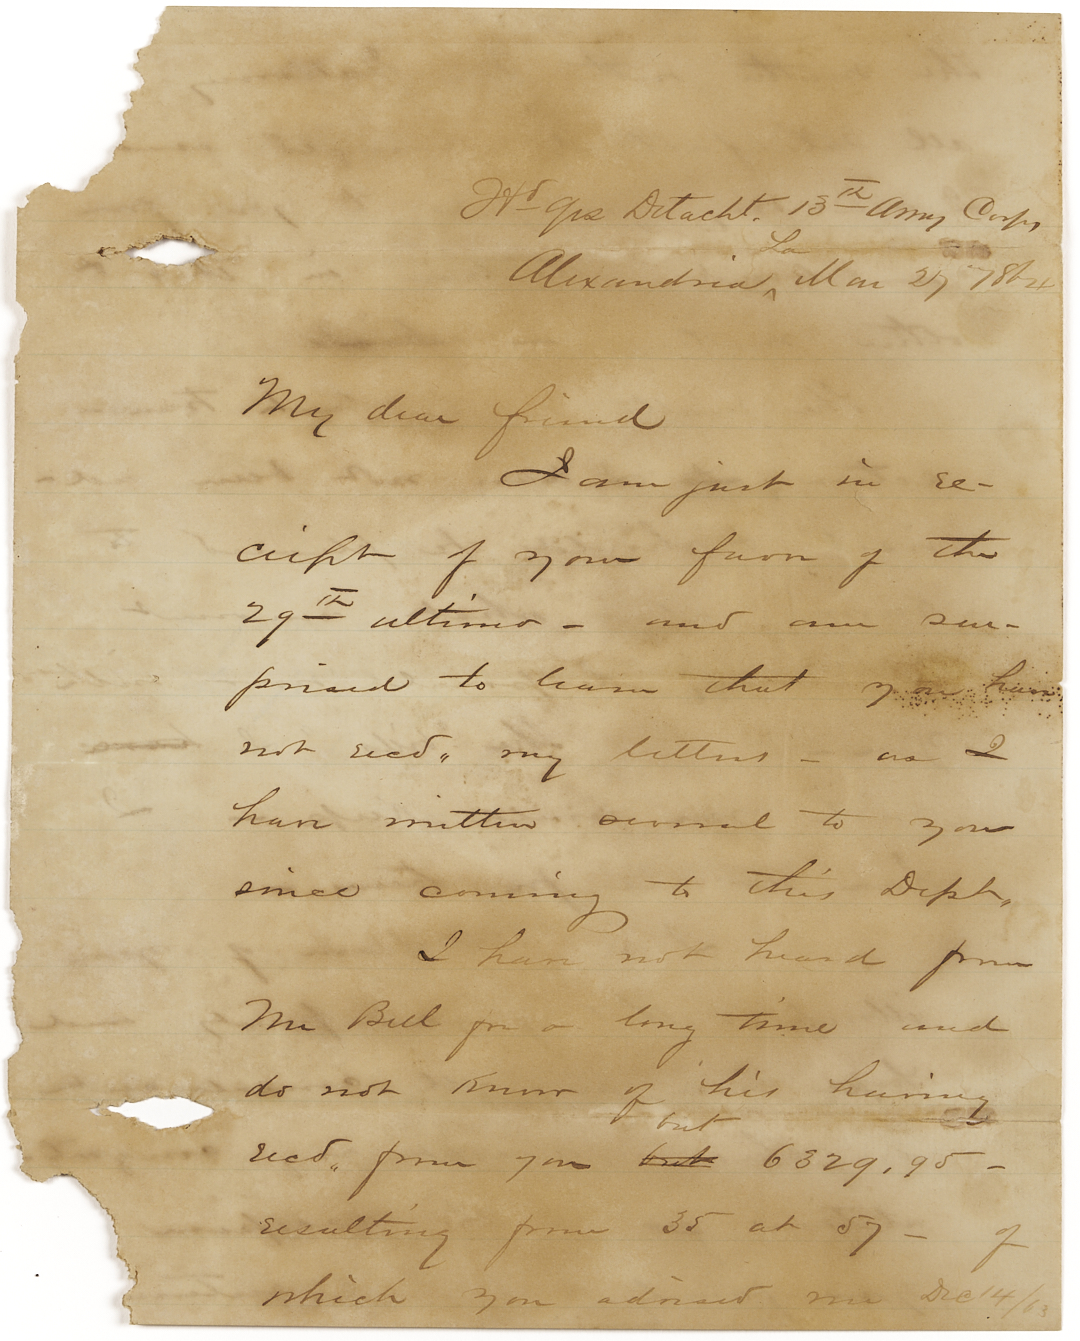 Hd qrs Detacht. 13th Army Corps
Alexandria, La Mar 27 1864
My dear friend
I am just in re-
ceipt of your favor of the
29th ultimo - and am sur-
prised to learn that you have
not recd,, my letters - as I
have written several to you
since coming to this Dept,,
I have not heard from
Mr Bell for a long time and
do not know of his having
but
recd,, from you but 6329,95 -
resulting from 35 at 57 - of
which you advised me Dec 14/63